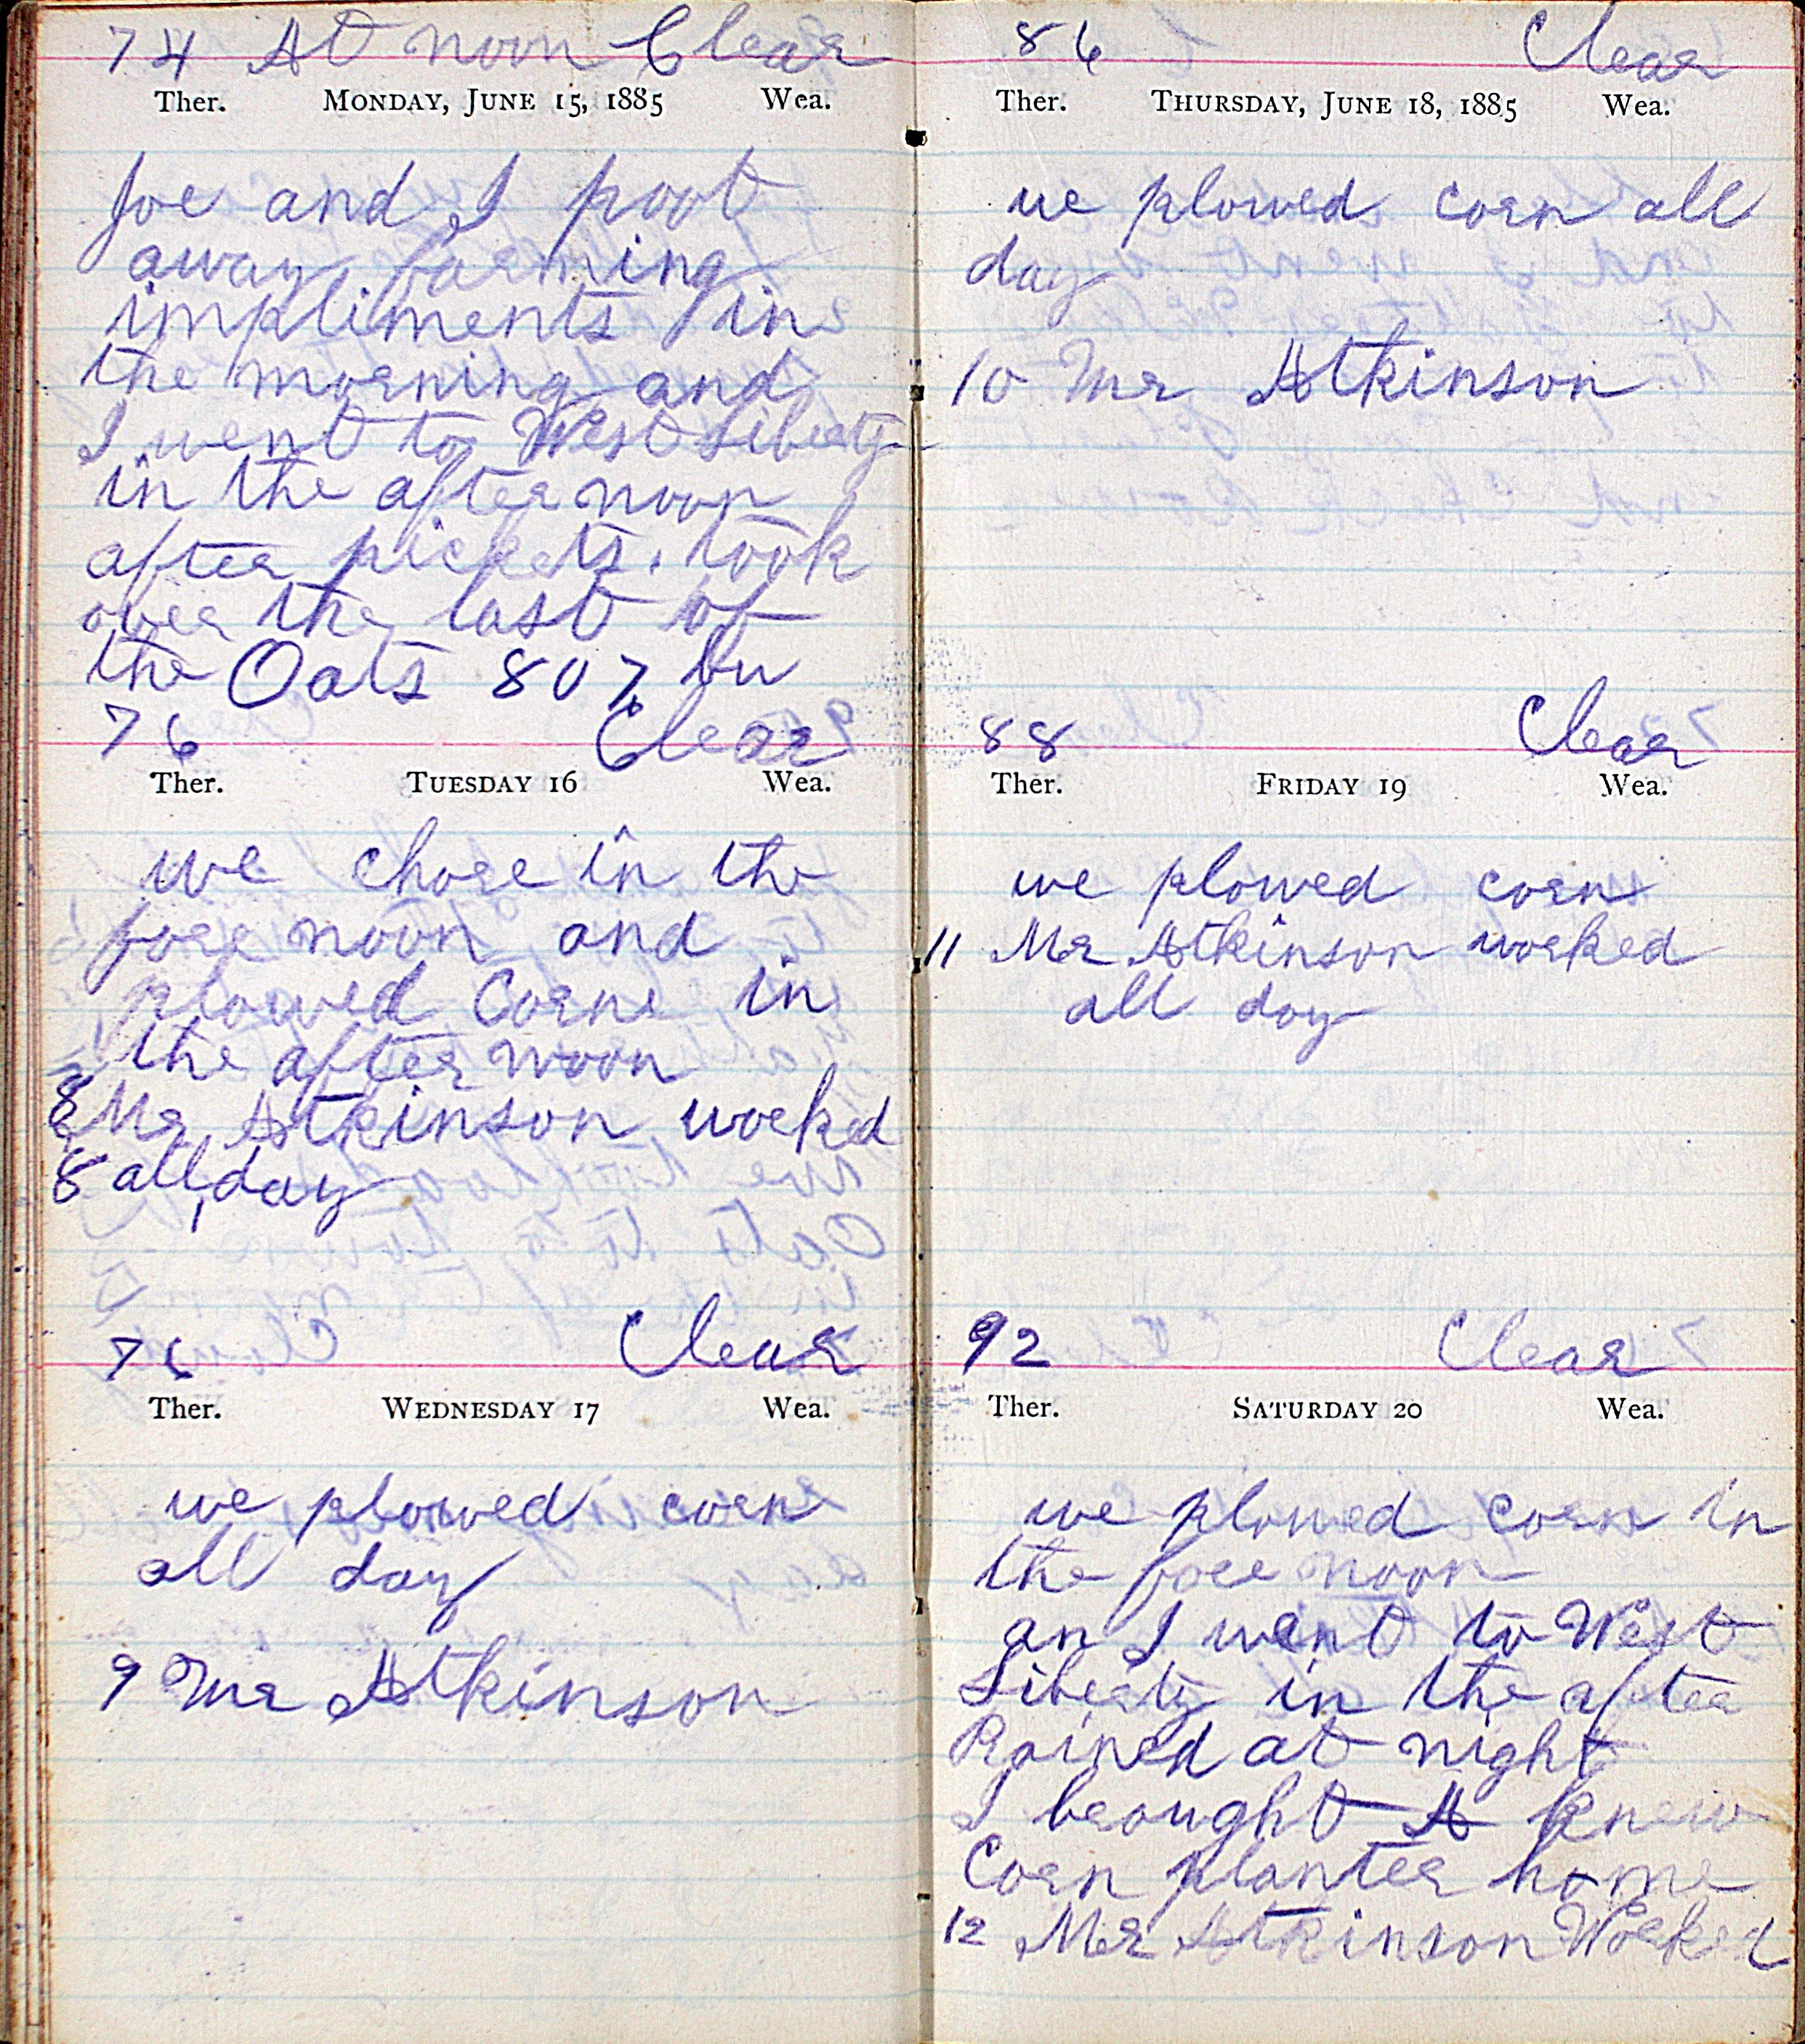 74 At noon Clear
Ther. Monday, June 15, 1885 Wea.
Joe and I poot
away farming
impliments in
the morning and
I went to West Liberty
in the after noon
after pickets. took
over the last of
the Oats 807 bu
76 Clear
Ther. Tuesday 16 Wea.
we chore in the
fore noon and
plowed Corne in
the after noon
8 Mr Atkinson worked
8 all day
76 Clear
Ther. Wednesday 17 Wea.
we plowed corn
all day
9 Mr Atkinson
86 Clear
Ther. Thursday, June 18, 1885 Wea.
we plowed corn all
day
10 Mr Atkinson
88 Clear
Ther. Friday 19 Wea.
we plowed corn
11 Mr Atkinson worked
all day
92 Clear
Ther. Saturday 20 Wea.
we plowed corn in
the fore noon
an I want to West
Liberty in the after
Rained at night
I brought A knew
Corn planter home
12 Mr Atkinson Worked